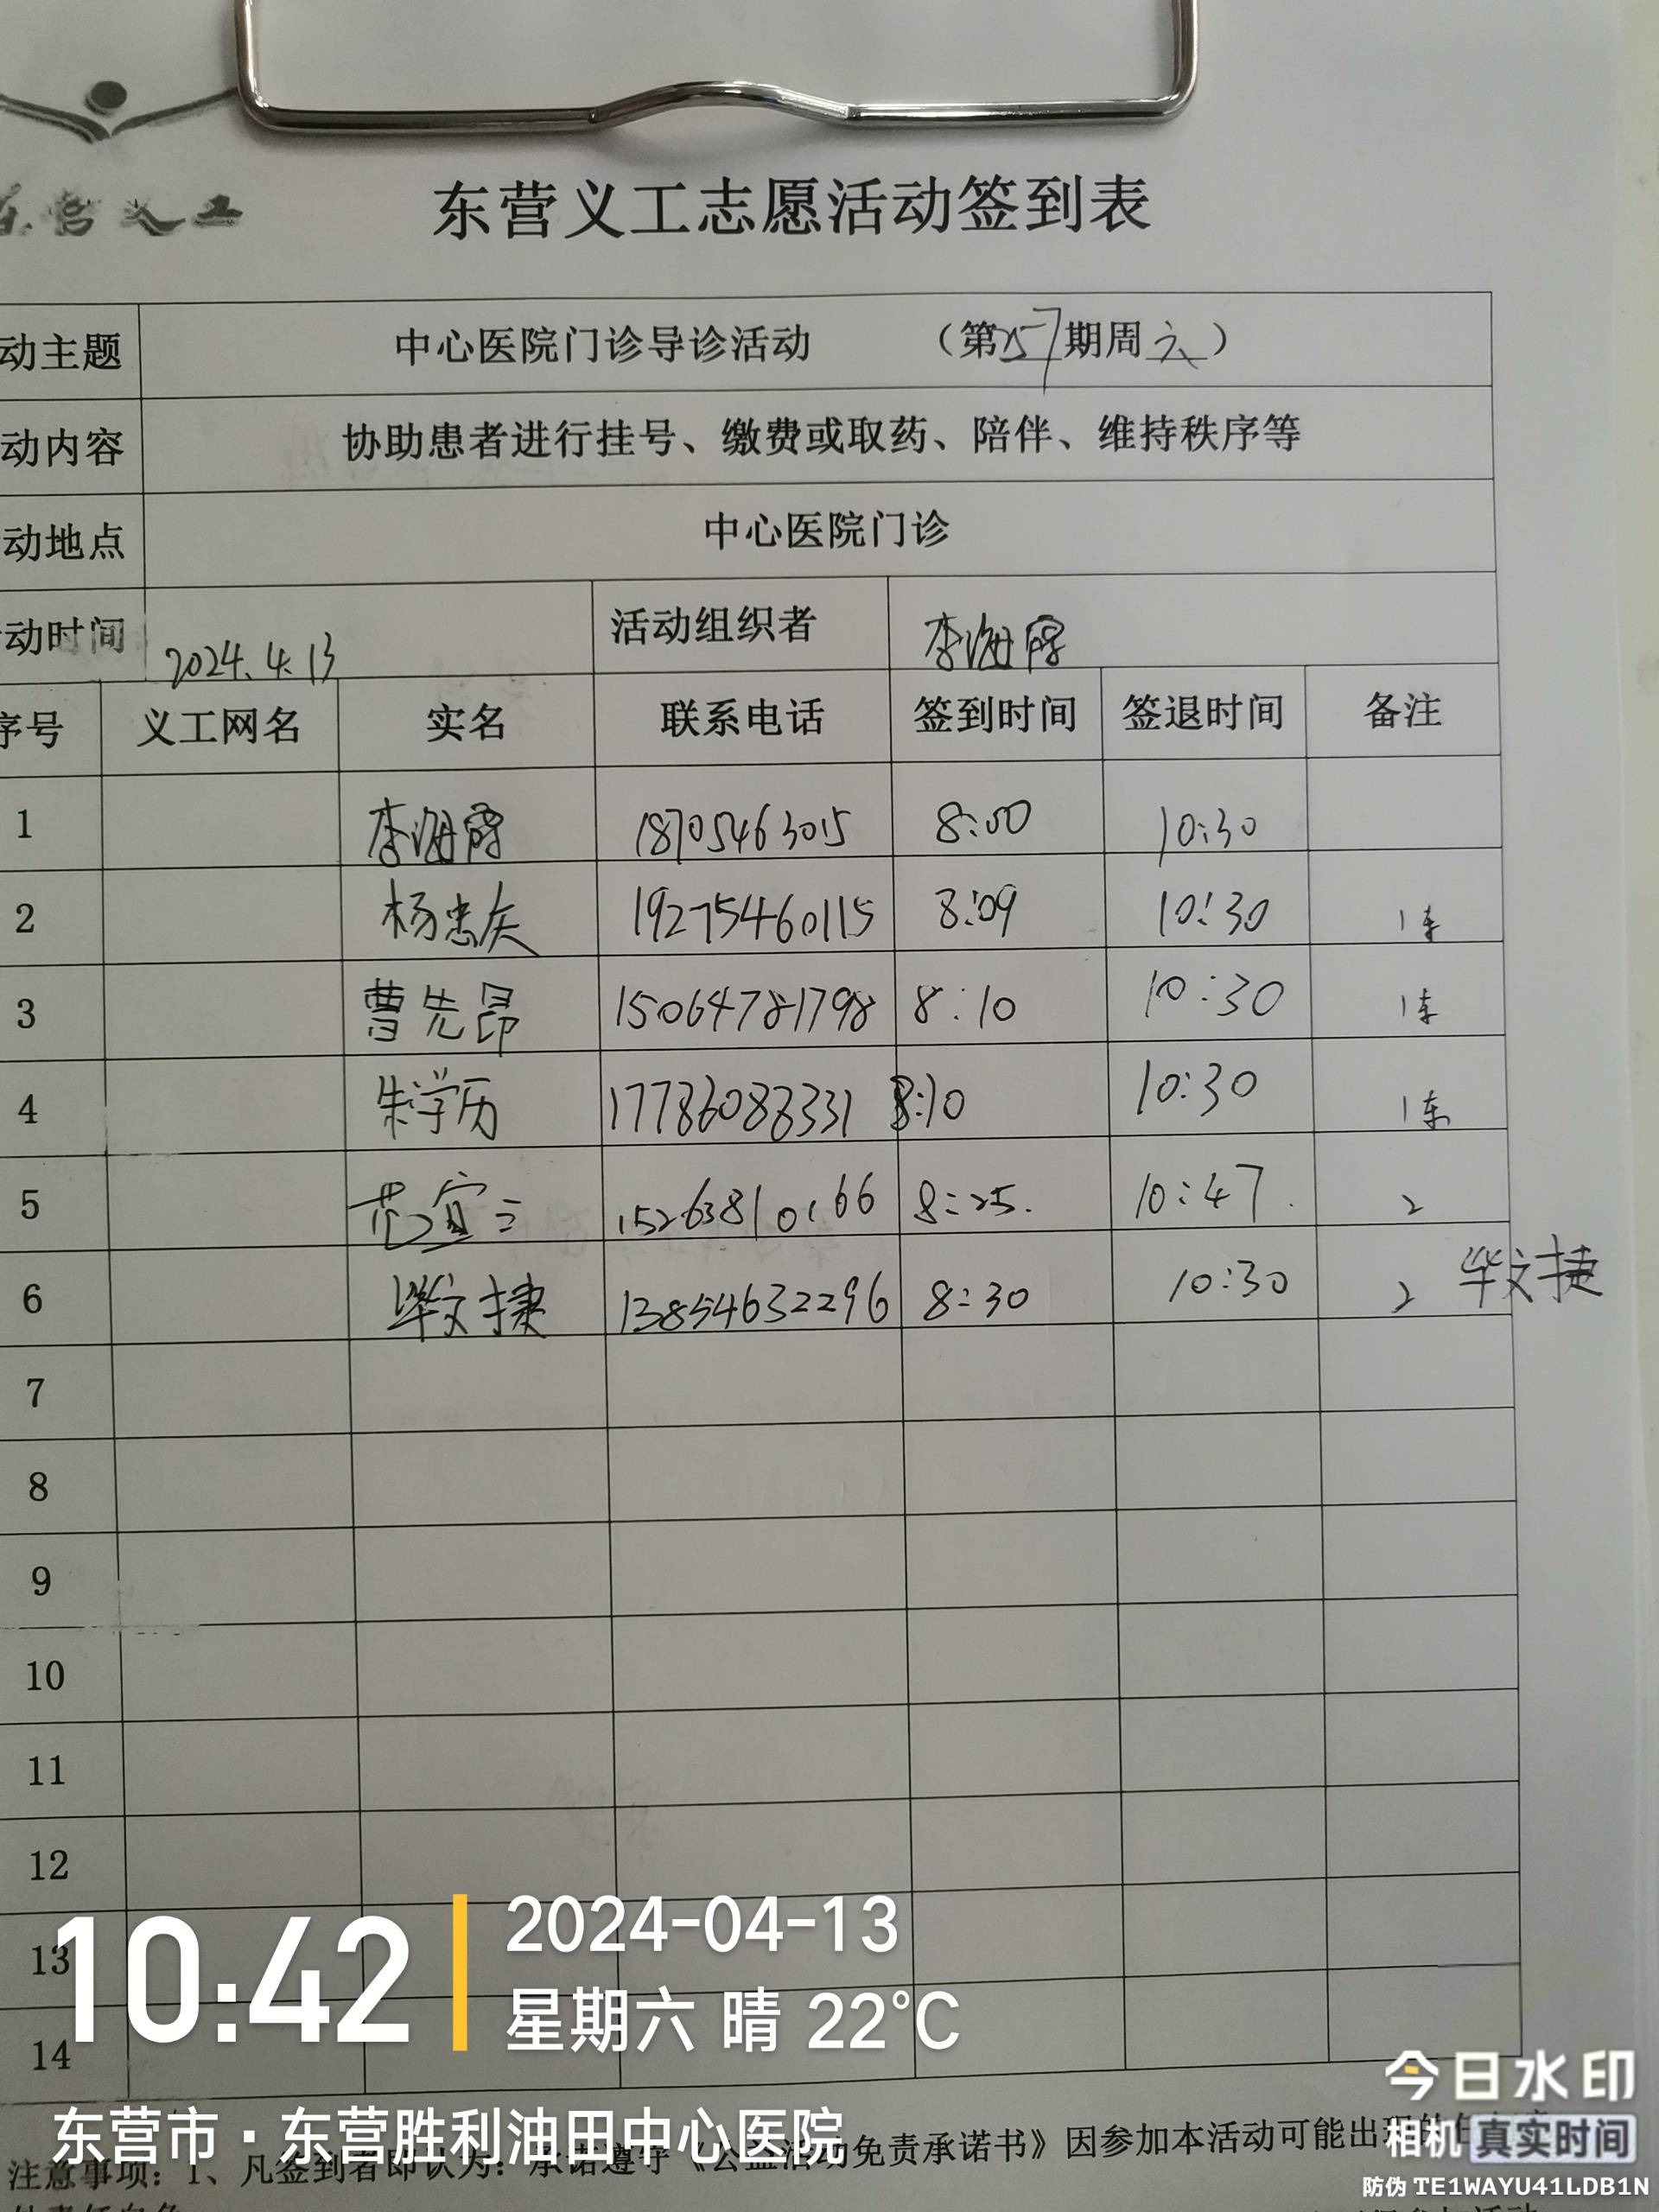 东营义工
东营义工志愿活动签到表
动主题 中心医院门诊导诊活动 （第257期周六）
动内容 协助患者进行挂号、缴费或取药、陪伴、维持秩序等
动地点 中心医院门诊
动时间 2024.4.13 活动组织者 李海霞
序号 义工网名 实名 联系电话 签到时间 签退时间 备注
1 李海霞 18705463015 8:00 10:30
2 杨忠庆 19275460115 8:09 10:30 1东
3 曹先昂 15064781798 8:10 10:30 1东
4 朱学历 17786088331 8:10 10:30 1东
5 范宜三 15263810166 8:25. 10:47. 2
6 毕文捷 13854632296 8:30 10:30 2 毕文捷
7
8
9
10
11
12
13
14
10:42
2024-04-13
星期六 晴 22°C
东营市·东营胜利油田中心医院
注意事项：1、凡签到者即认为：承诺遵守《公益活动免责承诺书》因参加本活动可能出现的
今日水印
相机 真实时间
防伪 TE1WAYU41LDB1N